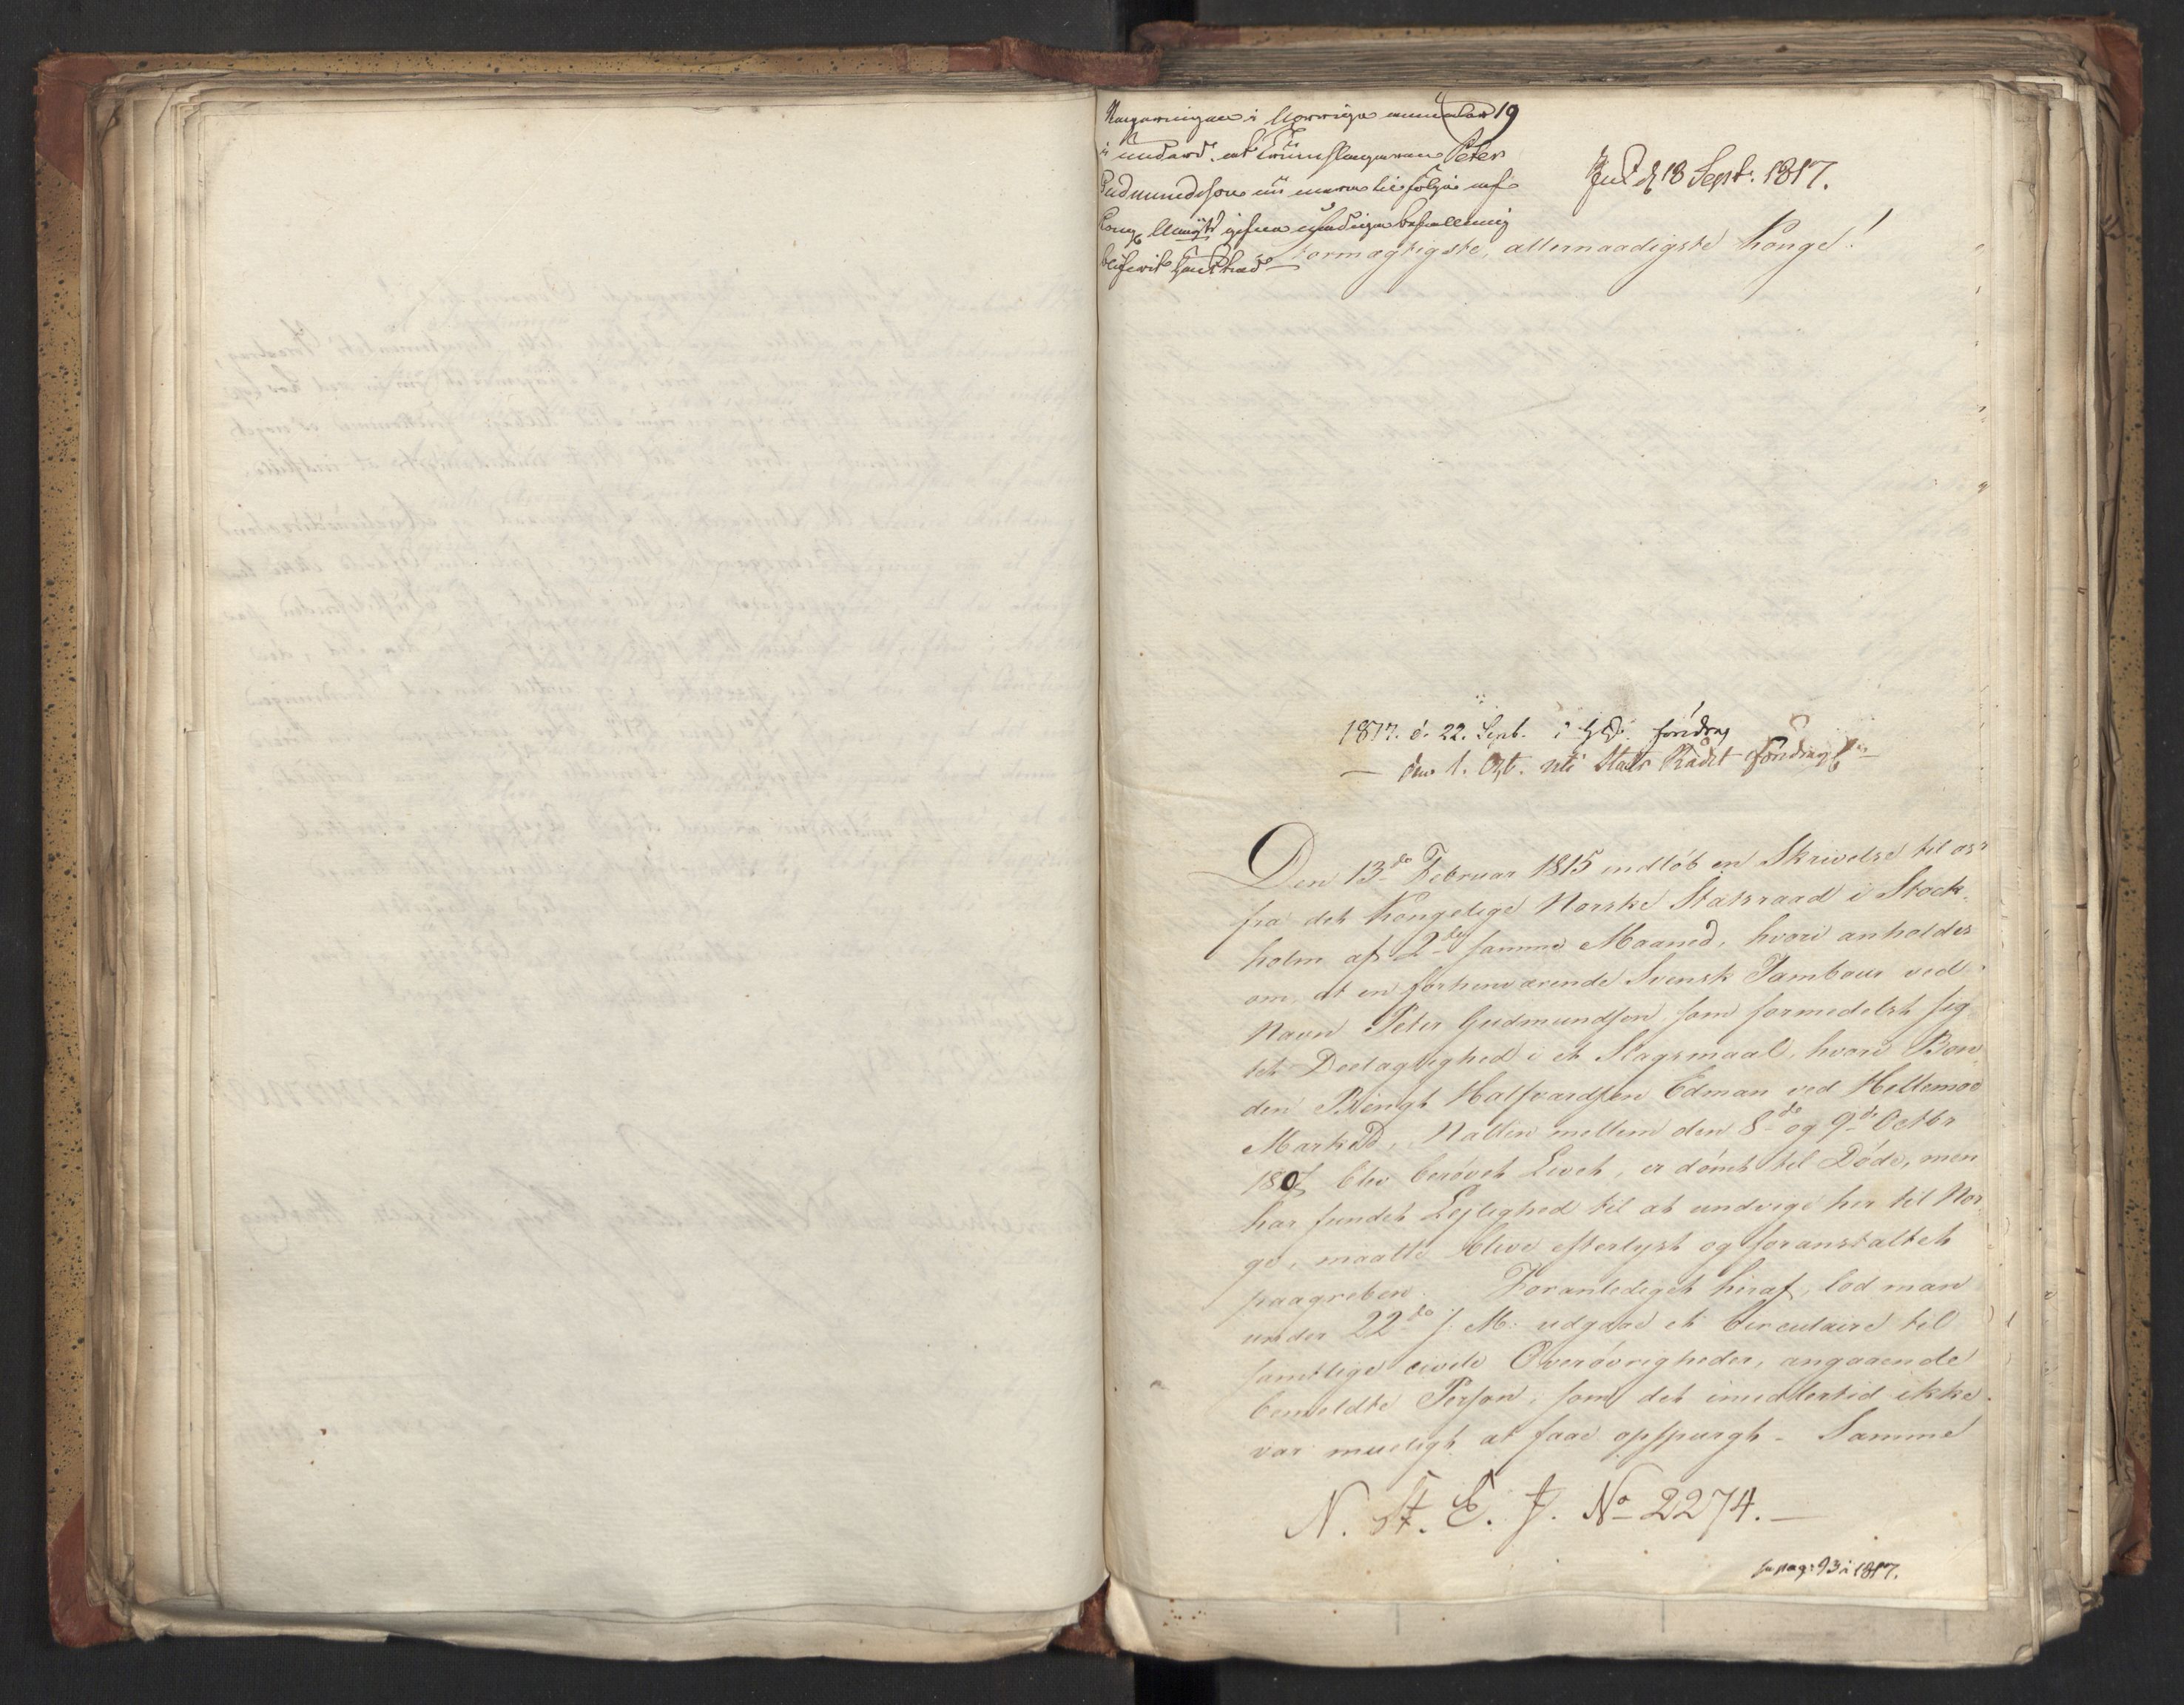 Regeringen i Norrige anmäler 19
i underd. at Trumslagaren Peter
Gudmundsson nu mera til följe af
Kong. Maijts gifna nådiga befallning
blifwit häcktad
Ink d 18 Sept. 1817.
Stormægtigste, allernaadigste Konge!
1817. d. 22. Sept. i H.D. föredrag
— den 1. Oct. uti Stats Rådet föredragen
Den 13de Februar 1815 indløb en Skrivelse til os
fra det Kongelige Norske Statsraad i Stock-
holm af 2den samme Maaned, hvori anholdes
om, at en forhenværende Svensk Tambour ved
Navn Peter Gudmundsen, som formedelst sig
tet Deelagtighed i et Slagsmaal, hvori Bon-
den Bengt Halfvardsen Edman ved Hellemoe
Marked, Natten mellem den 8de og 9de Octbr
180 blev berøvet Livet, er dømt til Døde, men
har fundet Lejlighed til at undvige her til Nor-
ge, maatte blive efterlyst og foranstaltet
paagreben. Foranlediget heraf, lod man
under 22de s. M. udgaae et Circulaire til
samtlige civile Overøvrigheder, angaaende
bemeldte Person, som det imidlertid ikke
var mueligt at faae opspurgt - Samme
N. St. E. J. No 2274.
pag: 93 i 1817.